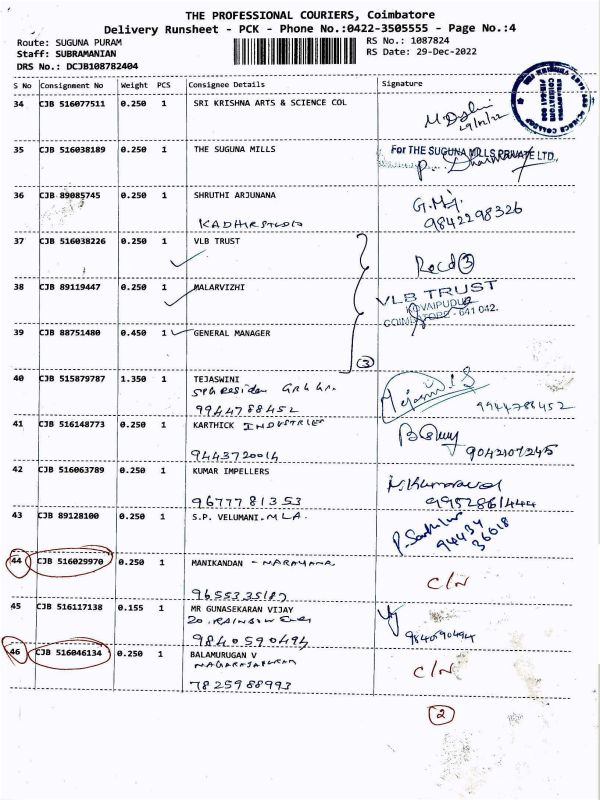 THE PROFESSIONAL COURIERS, Coimbatore
Delivery Runsheet - PCK - Phone No.:0422-3505555 - Page No.:4
Route: SUGUNA PURAM
RS No.: 1087824
Staff: SUBRAMANIAN
RS Date: 29-Dec-2022
DRS No.: DCJB108782404
S No Consignment No Weight PCS Consignee Details Signature
34 CJB 516077511 0.250 1 SRI KRISHNA ARTS & SCIENCE COL
35 CJB 516038189 0.250 1 THE SUGUNA MILLS
For THE SUGUNA MILLS PRIVATE LTD.,
36 CJB 89085745 0.250 1 SHRUTHI ARJUNANA
KADHIR STUDIO
9842298326
37 CJB 516038226 0.250 1 VLB TRUST
Recd 3
38 CJB 89119447 0.250 1 MALARVIZHI
VLB TRUST
KOVAIPUDUR
COIMBATORE - 641 042.
39 CJB 88751480 0.450 1 GENERAL MANAGER
3
40 CJB 515879787 1.350 1 TEJASWINI
9944788452
9944788452
41 CJB 516148773 0.250 1 KARTHICK INDUSTRIES
9443720014
9042107245
42 CJB 516063789 0.250 1 KUMAR IMPELLERS
9677781353
9952861444
43 CJB 89128100 0.250 1 S.P. VELUMANI. MLA.
94434
36018
44 CJB 516029970 0.250 1 MANIKANDAN - NARAYANA
C/N
45 CJB 516117138 0.155 1 MR GUNASEKARAN VIJAY
20. RAINBOW
9840590494
46 CJB 516046134 0.250 1 BALAMURUGAN V
C/N
7825988993
2